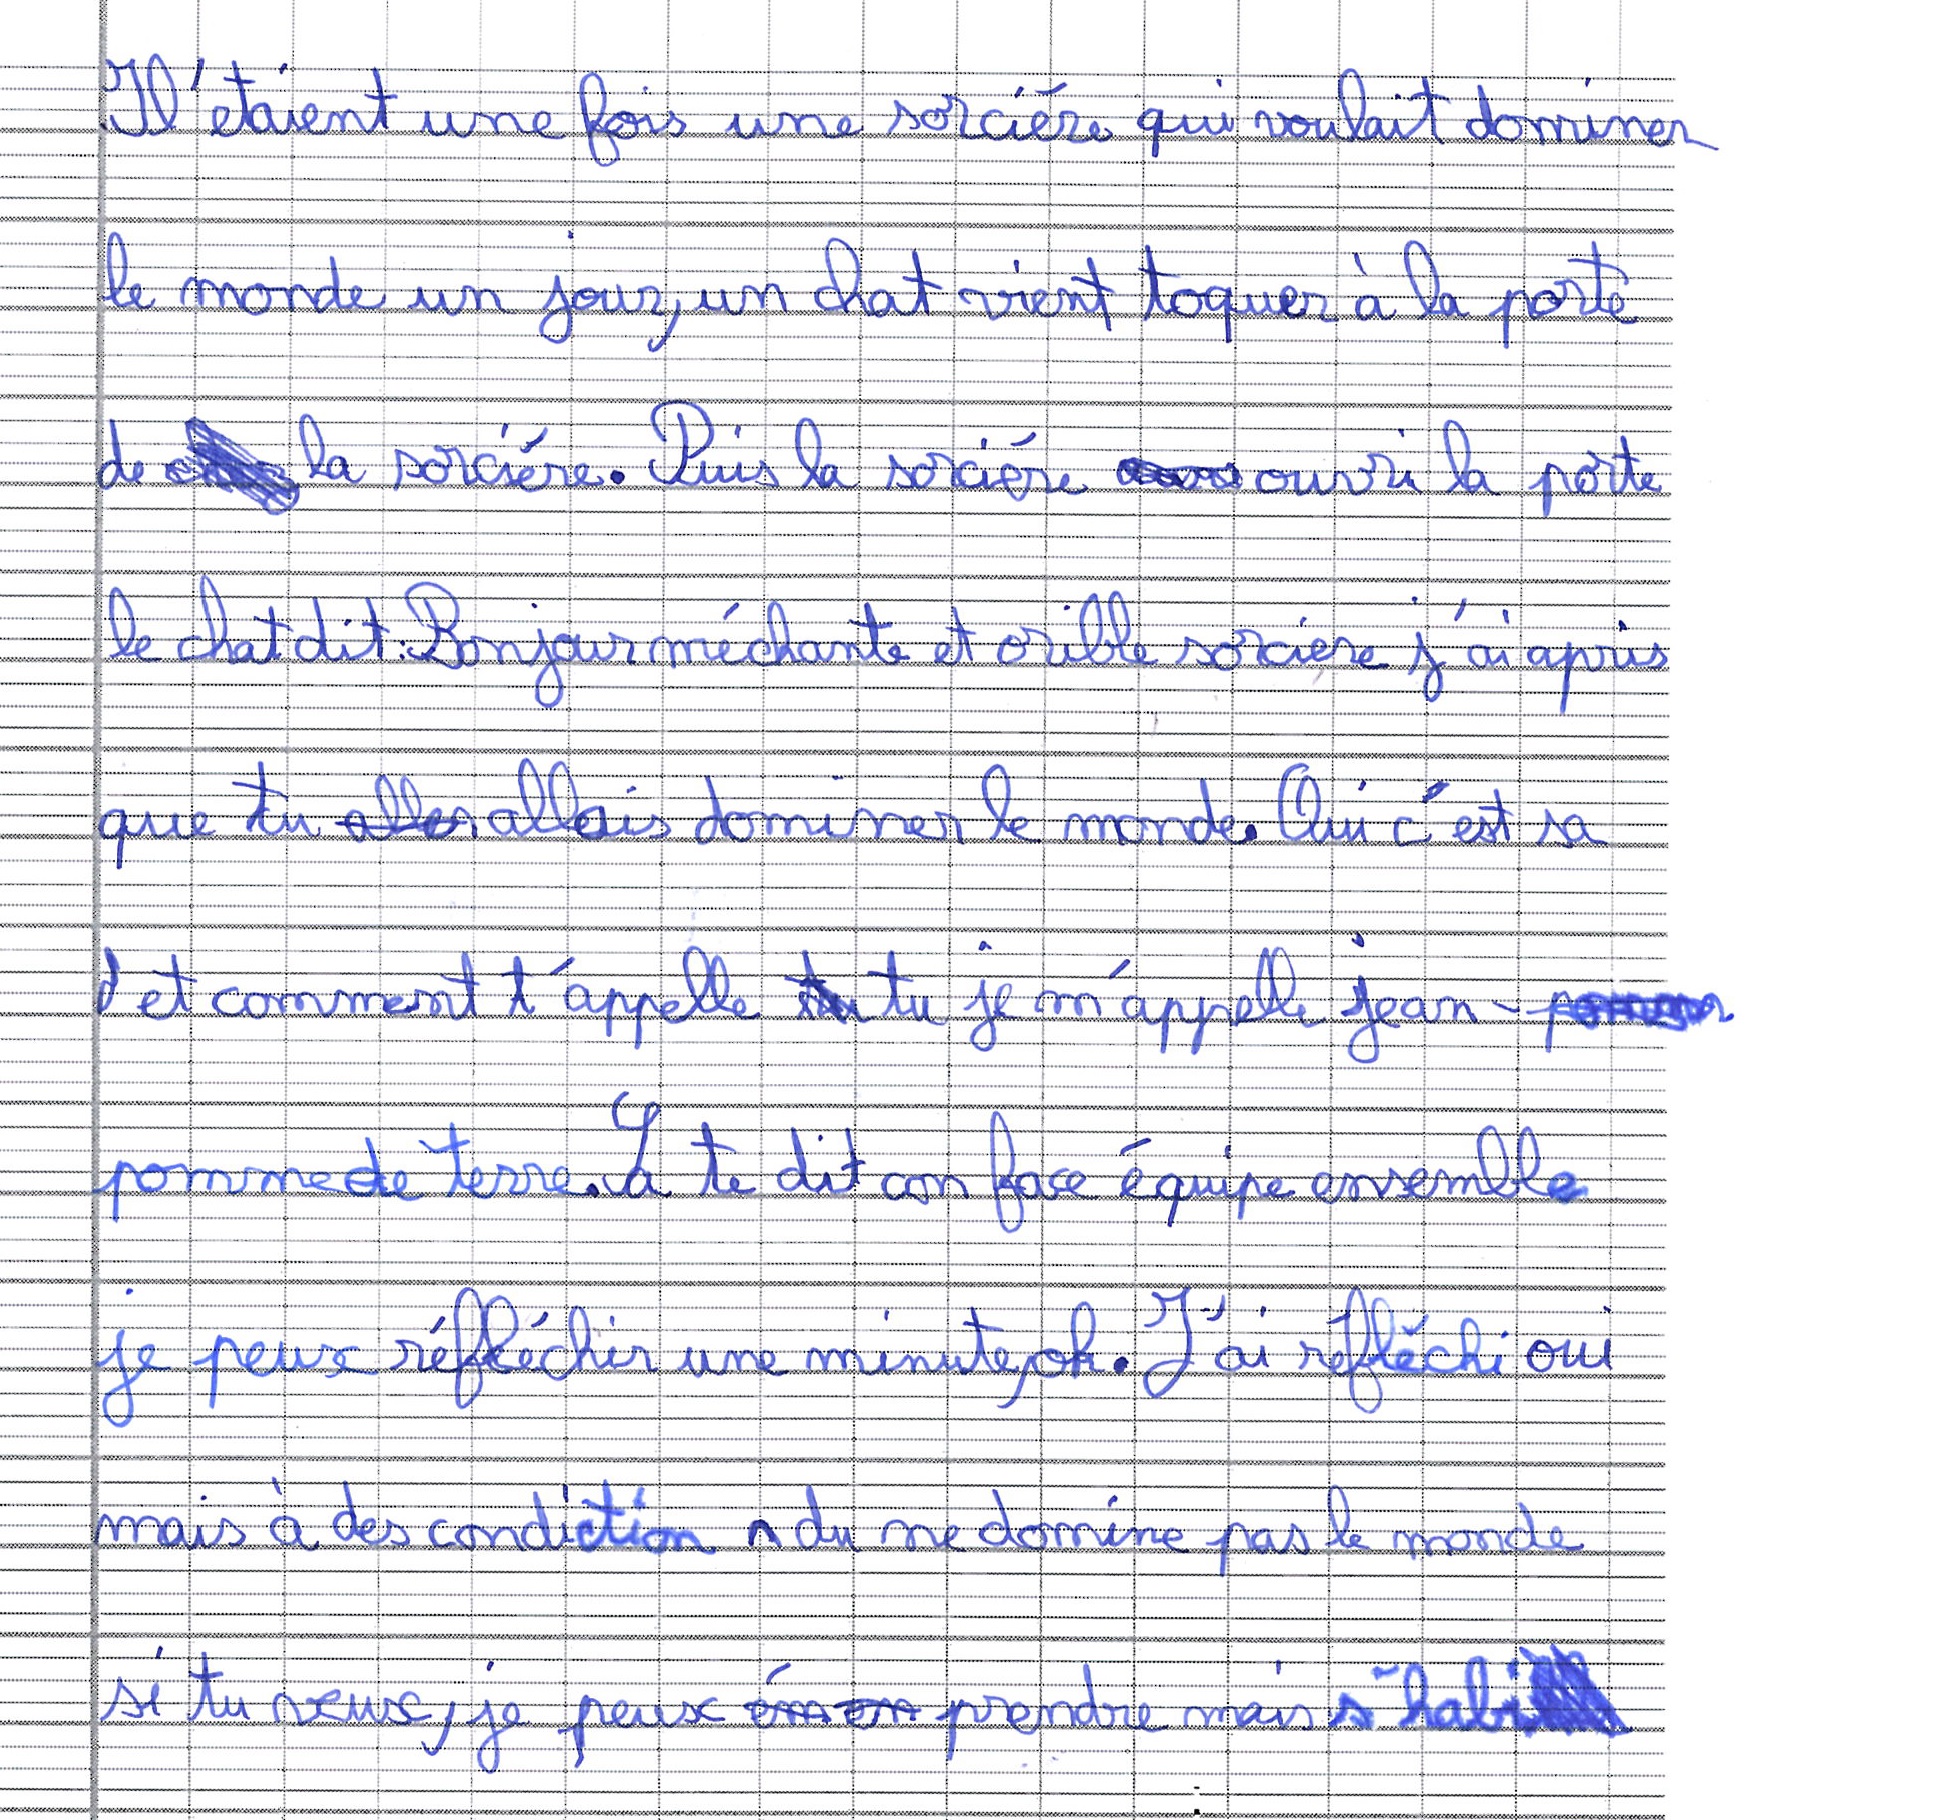 Il'etaient une fois une sorciére qui voulait dominer
le monde un jour, un chat vient toquer à la porte
de la sorciére. Puis la sorciére ouvri la porte
le chat dit : Bonjour méchante et orible sorciere j'ai apris
que tu aller allais dominer le monde. Oui c'est sa
et comment t'appelle tu je m'appelle jean -
pomme de terre. Sa te dit con face équipe ensemble
je peux réfléchir une minute, ok. J'ai refléchi oui
mais à des condiction du ne domine pas le monde
si tu veux, je peux prendre mais